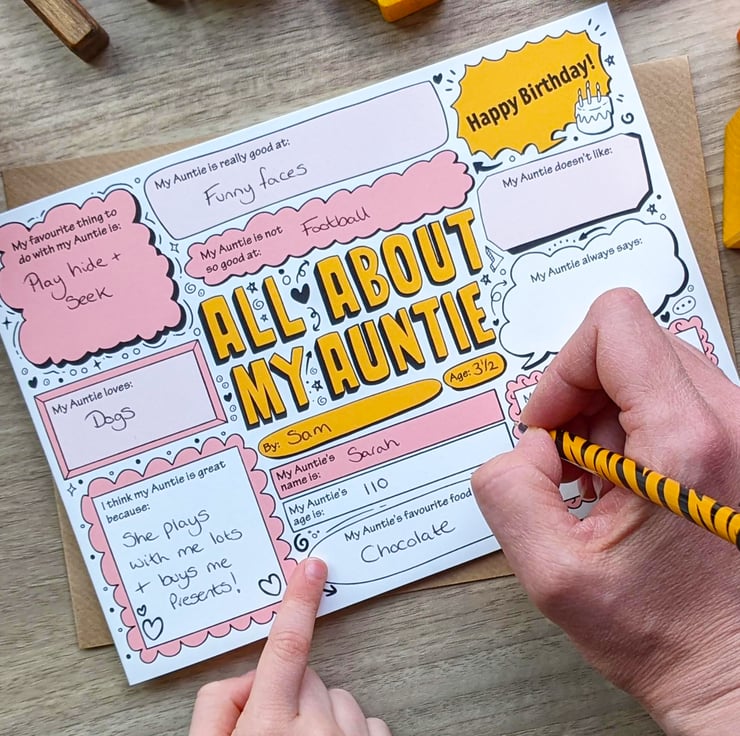 Happy Birthday!
My Auntie is really good at:
Funny faces
My Auntie doesn't like:
My favourite thing to
do with my Auntie is:
Play hide +
Seek
My Auntie is not
so good at:
Football
My Auntie always says:
ALL ABOUT
MY AUNTIE
My Auntie loves:
Dogs
By: Sam
Age: 3½
My Auntie's
name is:
Sarah
My Auntie's
age is:
110
My Auntie's favourite food
Chocolate
I think my Auntie is great
because:
She plays
with me lots
+ buys me
Presents!